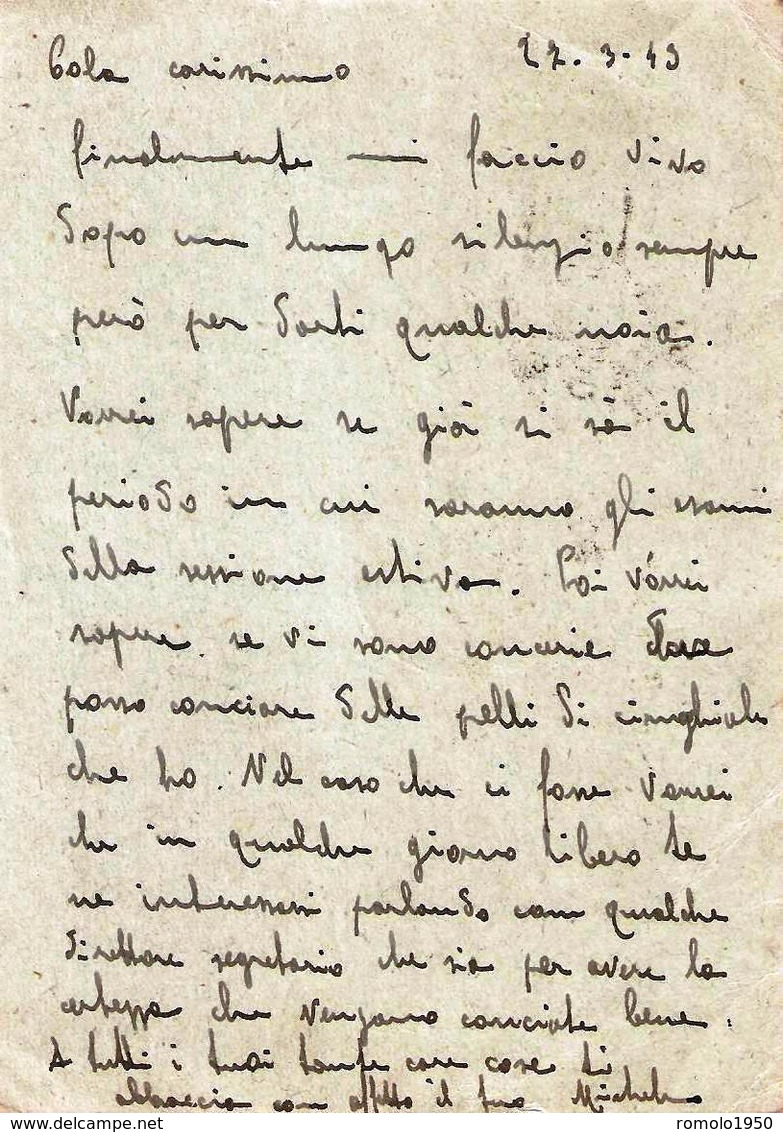 Cola carissimo 27.3.49
finalmente mi faccio vivo
dopo un lungo silenzio sempre
però per darti qualche noia.
Vorrei sapere se già si sà il
periodo in cui saranno gli esami
della sessione estiva. Poi vorrei
sapere se vi sono concerie dove
posso conciare delle pelli di cinghiale
che ho. Nel caso che ci fosse vorrei
che in qualche giorno libero te
ne interessassi parlando con qualche
direttore segretario che sia per avere la
certezza che vengano conciate bene.
A tutti i tuoi tante care cose ti
abbraccia con affetto il tuo Michele
romolo1950